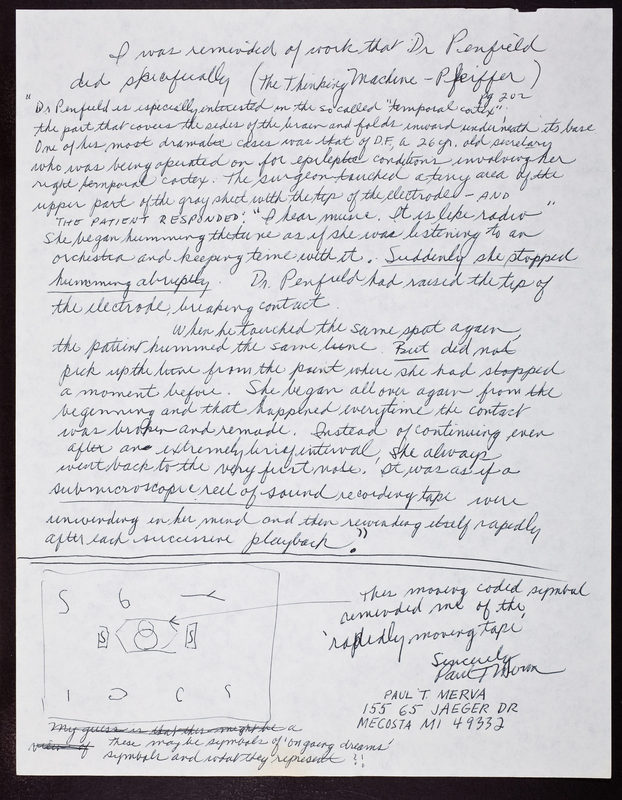 I was reminded of work that Dr Penfield
did skecifually (The Thinking Machine - Pfeiffer)
pg 202
"Dr Penfield is especially interested in the so called "temporal cortex".
the part that covers the sides of the brain and folds inward underneath its base
One of his most dramatic cases was that of D.F, a 26 yr. old secretary
who was being operated on for epileptic conditions involving her
right temporal cortex. The surgeon touched a tiny area of the
upper part of the gray sheet with the tip of the electrode - AND
THE PATIENT RESPONDED: "I hear music. It is like radio"
She began humming the tune as if she was listening to an
orchestra and keeping time with it. Suddenly she stopped
humming abruptly. Dr. Penfield had raised the tip of
the electrode, breaking contact.
When he touched the same spot again,
the patient hummed the same tune. But did not
pick up the tune from the point where she had stopped
a moment before. She began all over again from the
beginning and that happened everytime the contact
was broken and remade. Instead of continuing even
after an extremely brief interval, she always
went back to the very first note. It was as if a
submicroscopic reel of sound recording tape were
unwinding in her mind and then rewinding itself rapidly
after each successive playback."
S 6
S S
This moving coded symbol
reminded me of the
'rapidly moving tape'
Sincerely
Paul T Merva
PAUL T MERVA
155 65 JAEGER DR
MECOSTA MI 49332
My guess is that this might be a
view of these may be symbols of 'ongoing dreams'
symbols and what they represent ?!